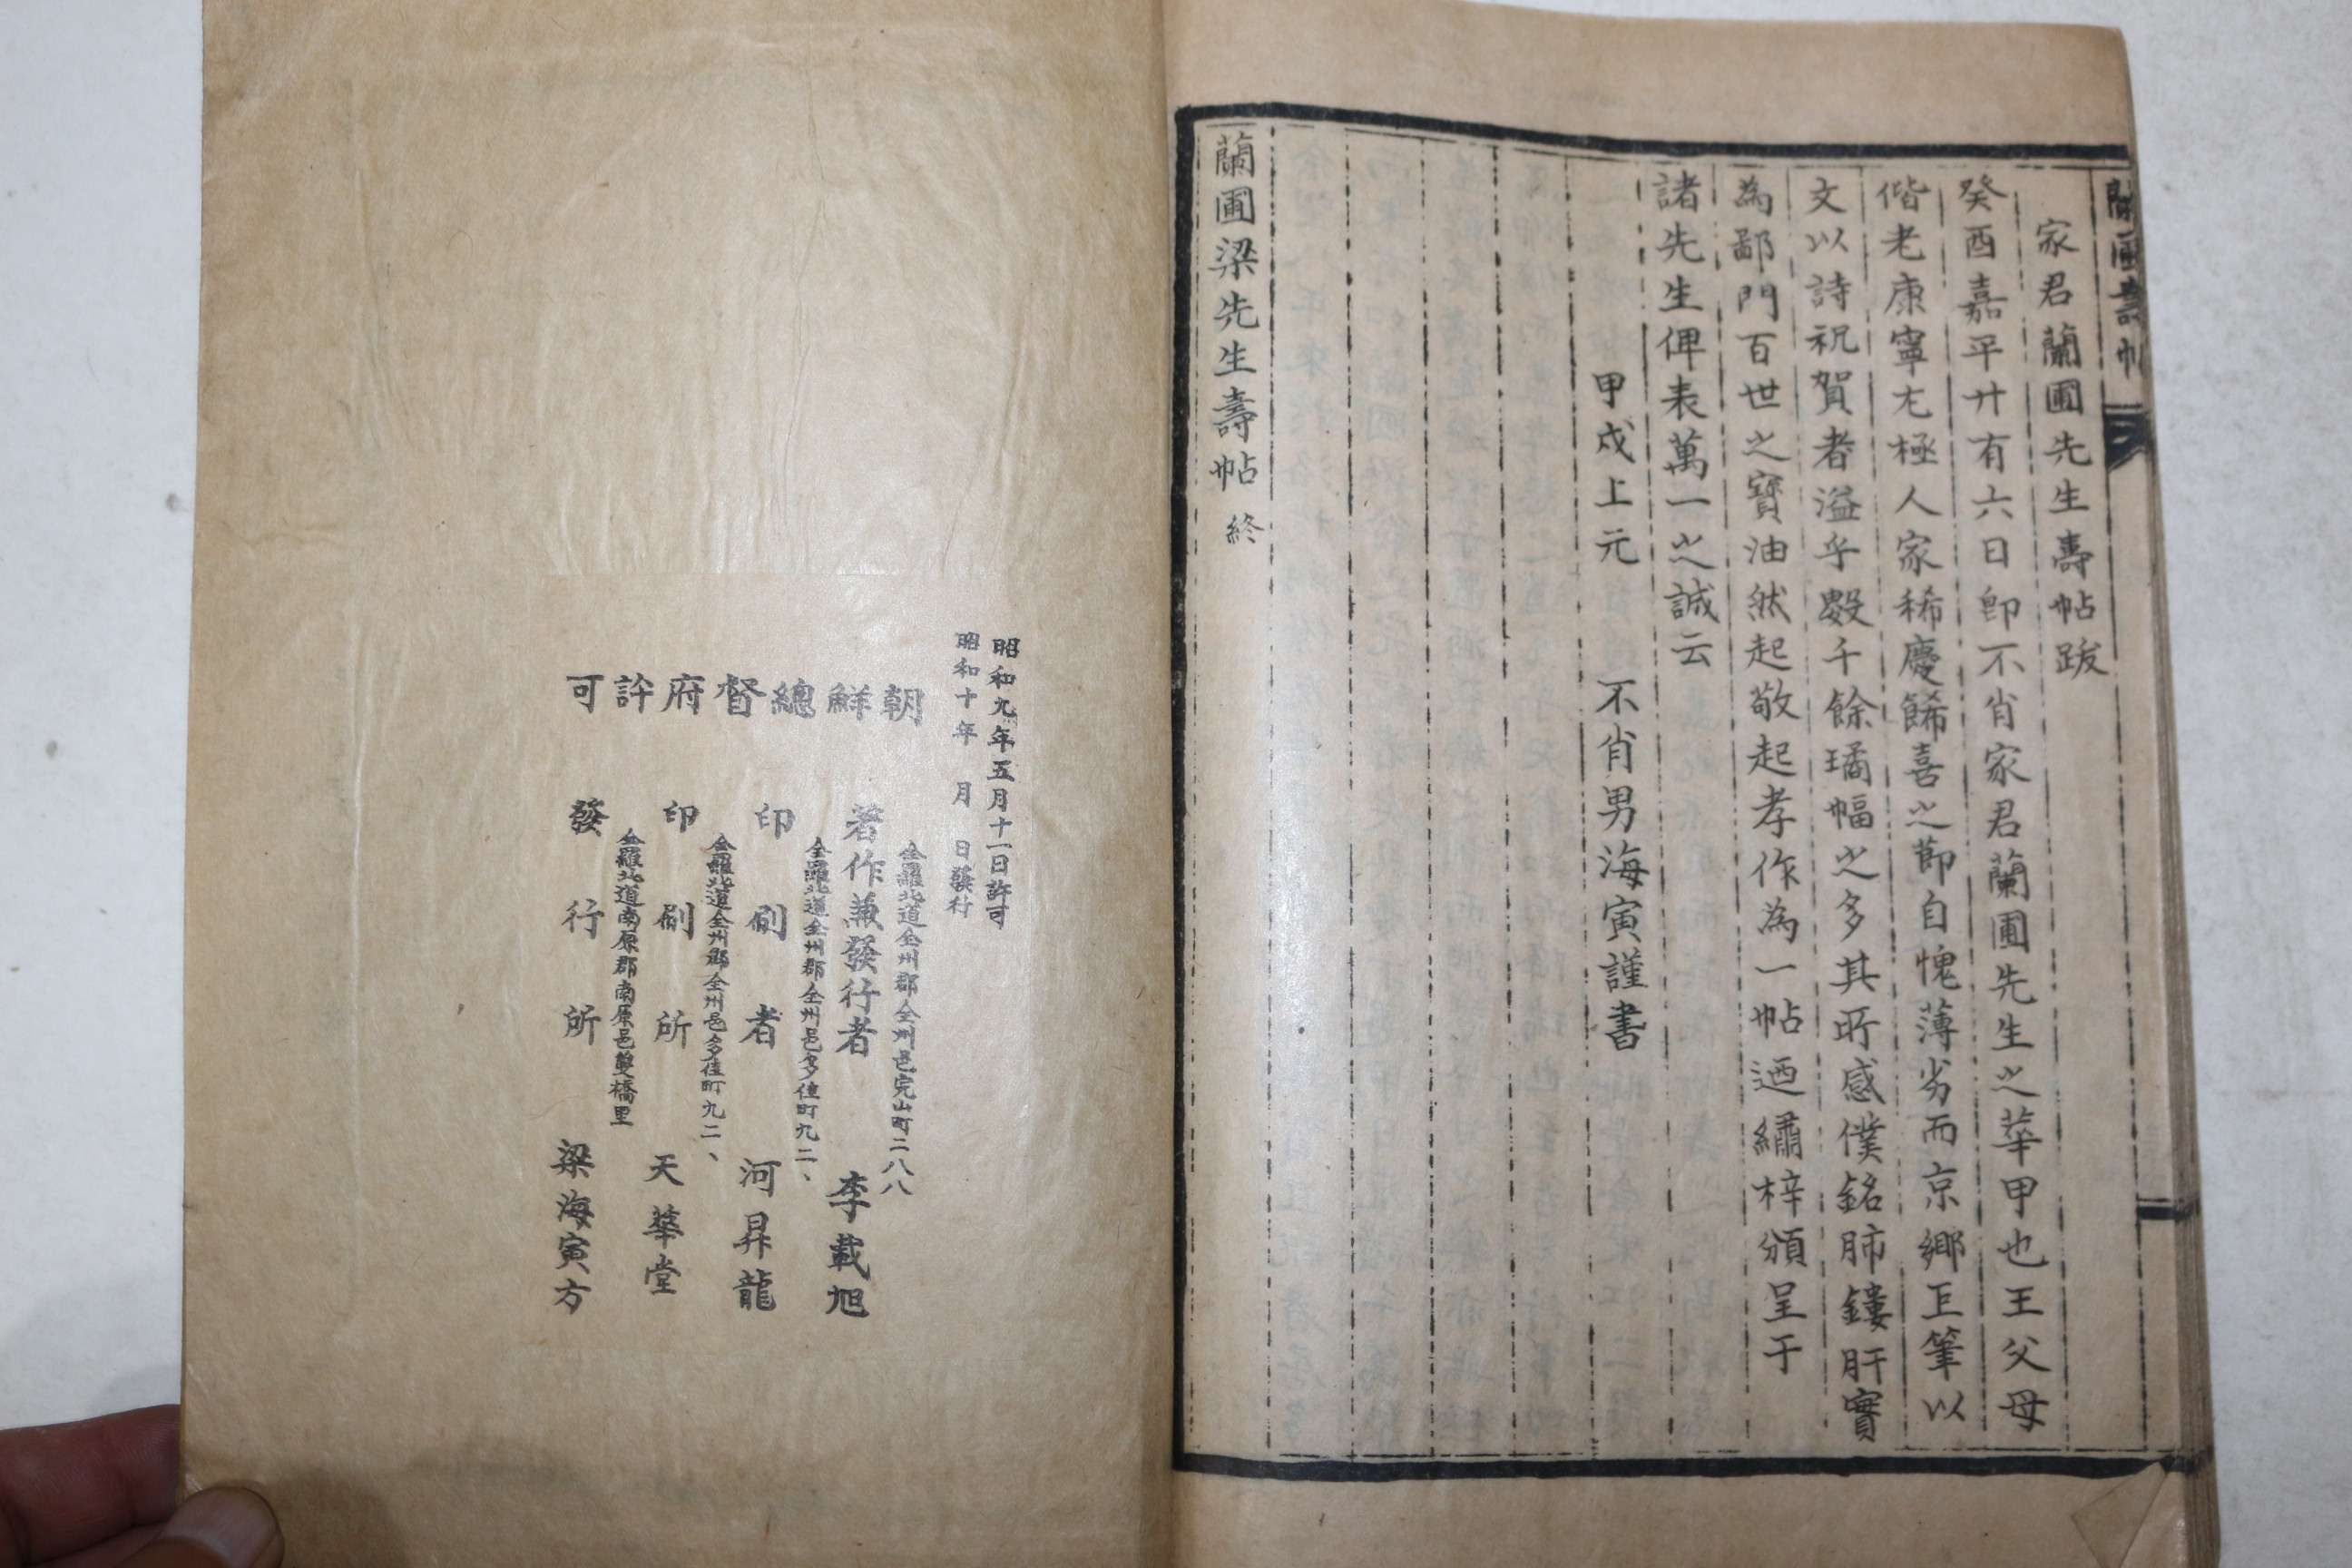 蘭圃壽帖
家君蘭圃先生壽帖跋
癸酉嘉平廿有六日卽不肖家君蘭圃先生之華甲也王父母
偕老康寧尤極人家稀慶餙喜之節自愧薄劣而京鄕巨筆以
文以詩祝賀者溢乎數千餘璚幅之多其所感僕銘肺鏤肝實
為鄙門百世之寶油然起敬起孝作為一帖迺繡梓頒呈于
諸先生俾表萬一之誠云
甲戌上元 不肖男海寅謹書
蘭圃梁先生壽帖 終
昭和九年五月十一日許可
昭和十年 月 日發行
朝鮮總督府許可
全羅北道全州郡全州邑完山町二八八
著作兼發行者 李載旭
全羅北道全州郡全州邑多佳町九二、
印刷者 河昇龍
全羅北道全州郡全州邑多佳町九二、
印刷所 天華堂
全羅北道南原郡南原邑雙橋里
發行所 梁海寅方